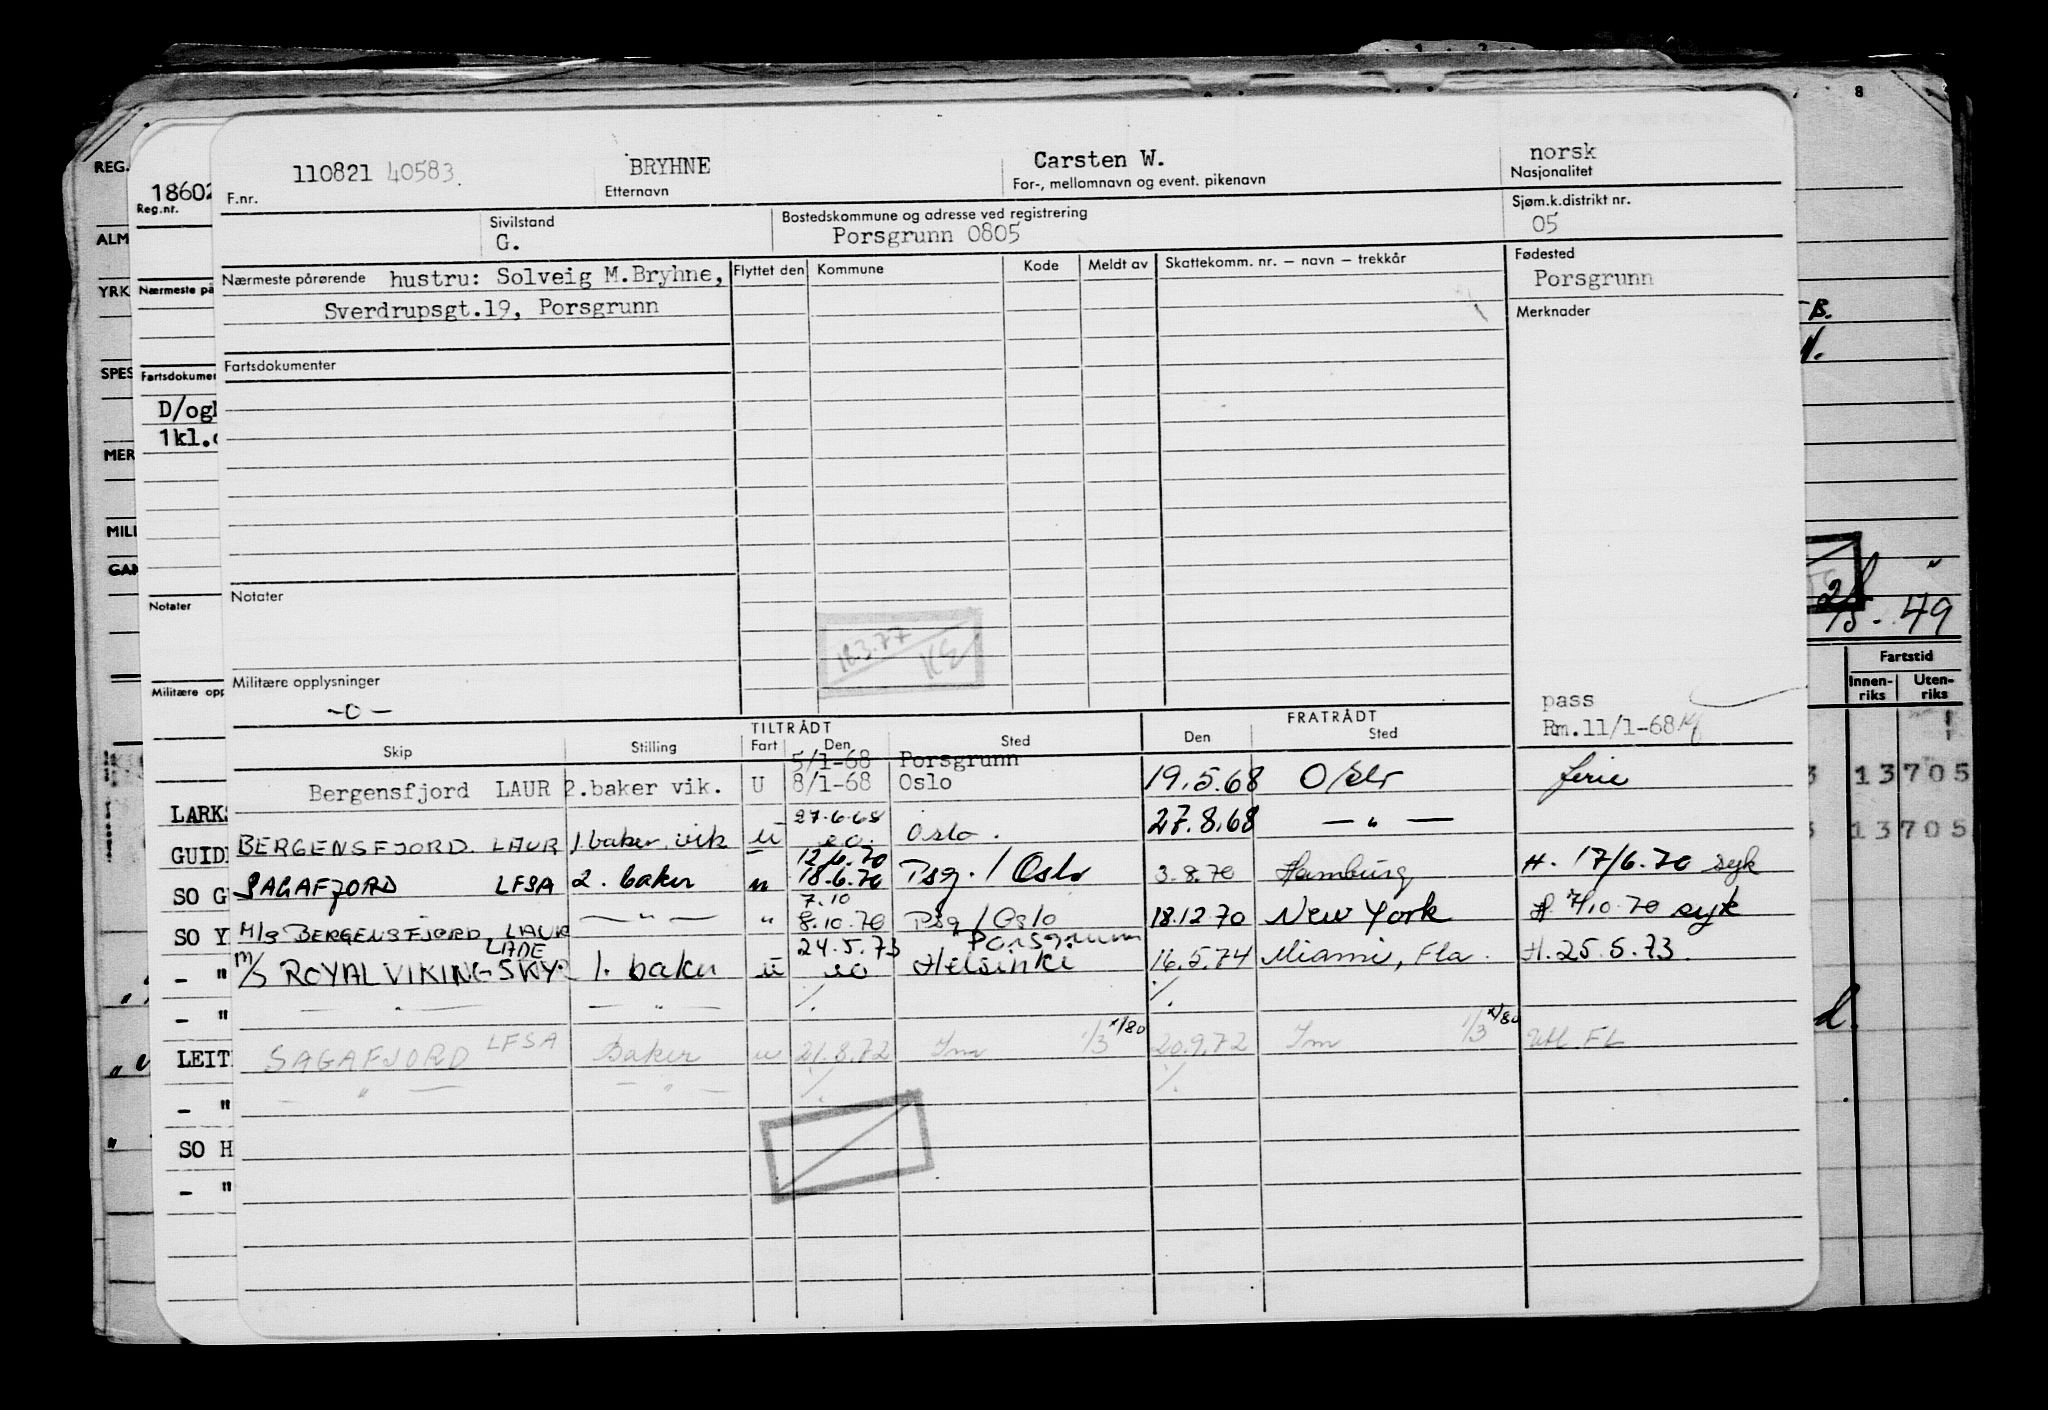 110821 40583 BRYHNE Carsten W. norsk
F.nr. Etternavn For-, mellomnavn og event. pikenavn Nasjonalitet
Sivilstand Bostedskommune og adresse ved registrering Sjøm.k.distrikt nr.
G. Porsgrunn 0805 05
Nærmeste pårørende hustru: Solveig M.Bryhne, Flyttet den Kommune Kode Meldt av Skattekomm. nr. — navn — trekkår Fødested
Porsgrunn
Sverdrupsgt.19, Porsgrunn Merknader
Fartsdokumenter
Notater
18.3.77
Militære opplysninger
-o-
pass
Rm.11/1-68
TILTRÅDT FRATRÅDT
Skip Stilling Fart Den Sted Den Sted
5/1-68 Porsgrunn
Bergensfjord LAUR 2.baker vik. U 8/1-68 Oslo 19.5.68 Oslo ferie
27.6.68
BERGENSFJORD LAUR 1.baker vik u eo. Oslo. 27.8.68 — " —
12/6.70
SAGAFJORD LFSA 2. baker u 18.6.70 Psg. / Oslo 3.8.70 Hamburg H. 17/6.70 syk
7.10
M/S BERGENSFJORD LAUR — " — " 8.10.70 Psg / Oslo 18.12.70 New York H 7/10.70 syk
LADE 24.5.73 Porsgrunn
m/s ROYAL VIKING SKY 1. baker u eo Helsinki 16.5.74 Miami, Fla. H. 25.5.73.
— " — — " — %. %.
SAGAFJORD LFSA Baker u 21.8.72 Im 1/3 x/80 20.9.72 Im 1/3 x/80 Utl. FL
— " — — " — %. %.
REG.
18602
Reg.nr.
ALM
YRK
Nærmeste på
SPES
Fartsdokumen
D/ogl
1kl.
MER
MILI
GAN
Notater
Militære opp
LARKS
GUID
SO G
SO Y
- "
- "
LEIT
- "
SO H
- "
8
B.
49
Fartstid
Innen-riks Uten-riks
13705
13705